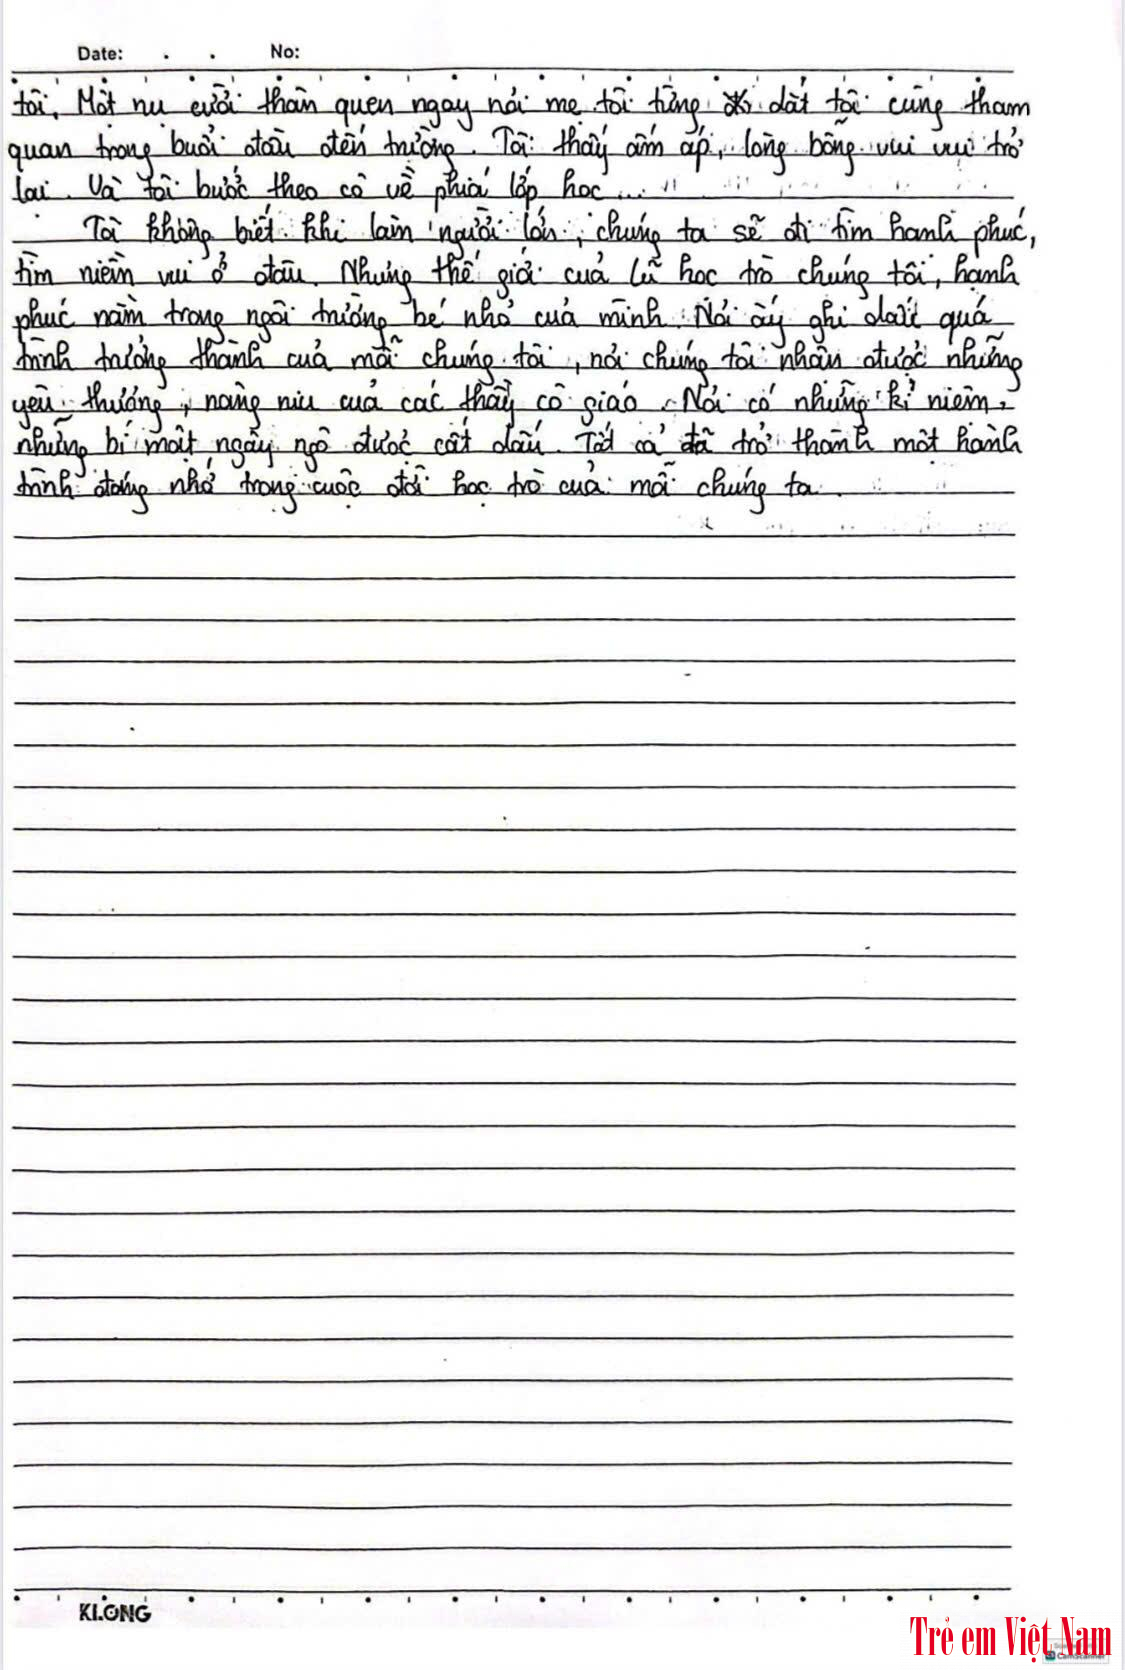 Date: . . No:
tôi. Một nụ cười thân quen ngay nơi mẹ tôi từng dắt tôi cùng tham
quan trong buổi đầu đến trường. Tôi thấy ấm áp, lòng bỗng vui vui trở
lại. Và tôi bước theo cô về phía lớp học...
Tôi không biết khi làm người lớn, chúng ta sẽ đi tìm hạnh phúc,
tìm niềm vui ở đâu. Nhưng thế giới của lũ học trò chúng tôi, hạnh
phúc nằm trong ngôi trường bé nhỏ của mình. Nơi ấy ghi dấu quá
trình trưởng thành của mỗi chúng tôi, nơi chúng tôi nhận được những
yêu thương, nâng niu của các thầy cô giáo. Nơi có những kỉ niệm,
những bí mật ngây ngô được cất dấu. Tất cả đã trở thành một hành
trình đáng nhớ trong cuộc đời học trò của mỗi chúng ta.
KLONG
Trẻ em Việt Nam
CamScanner